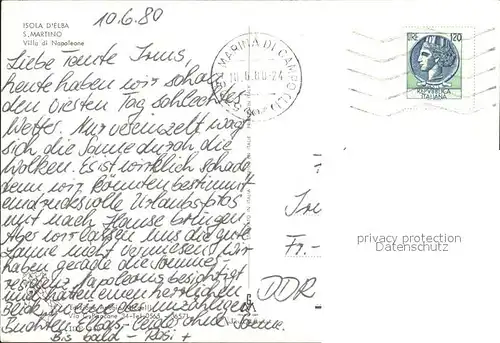 10.6.80
ISOLA D'ELBA
S. MARTINO
Villa di Napoleone
Liebe Tante Irms,
heute haben wir schon
den vierten Tag schlechtes
Wetter. Nur vereinzelt wagt
sich die Sonne durch die
Wolken. Es ist wirklich schade
denn wir könnten bestimmt
eindrucksvolle Urlaubsfotos
mit nach Hause bringen
Aber wir lassen uns die gute
Laune nicht vermiesen. Wir
haben gerade die Sommer-
residenz Napoleons besichtigt
und hatten einen herrlichen
Blick in eine der unzähligen
Buchten Elbas - leider ohne Sonne.
Bis bald - Rosi +
MARINA DI CAMPO (LI)
10.6.80-24
LIRE 120
REPUBBLICA
ITALIANA
Fr.-
DDR
privacy protection
Datenschutz